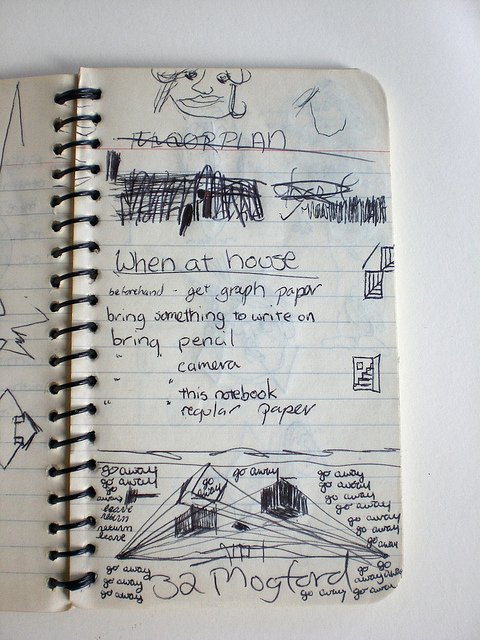 FLOORPLAN
When at house
beforehand - get graph paper
bring something to write on
bring pencil
" camera
" " this notebook
" " regular paper
go away go away go away
go away go away
go away go away
go away
leave go away
return go away
return go away
leave go away
go away
go away go away
go away 32 Mogford
go away go away go away